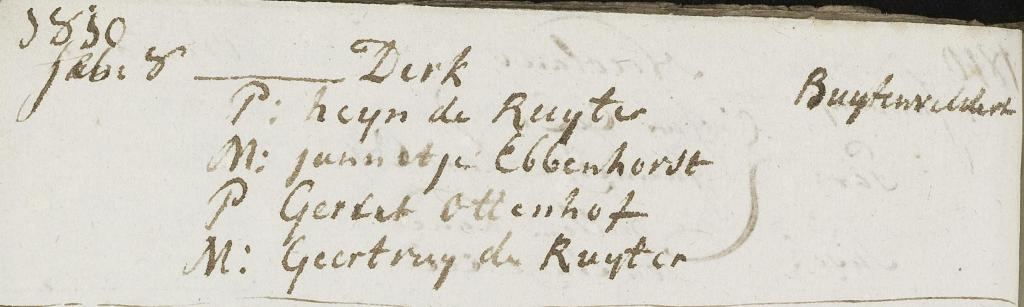 1810
febr 8 Derk
P: heyn de Ruyter Buytenveldert
M: jannetje Ebbenhorst
P Gerret Ottenhof
M: Geertruy de Ruyter